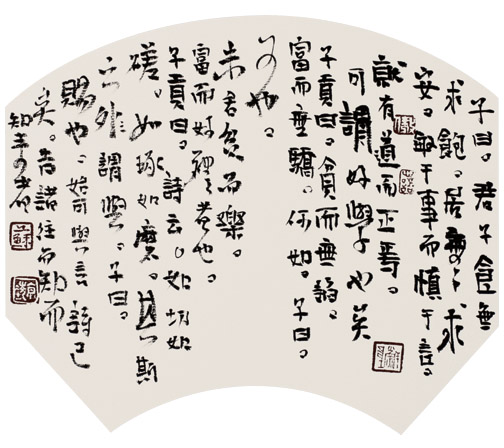 子曰。君子食無
求飽。居無求
安。敏于事而慎于言。
就有道而正焉。
可謂好學也矣
子貢曰。貧而無諂。
富而無驕。何如。子曰。
可也。
未若貧而樂。
富而好禮者也。
子貢曰。詩云。如切如
磋。如琢如磨。其斯
之謂與。子曰。
賜也。始可與言詩已
矣。告諸往而知而
知来者